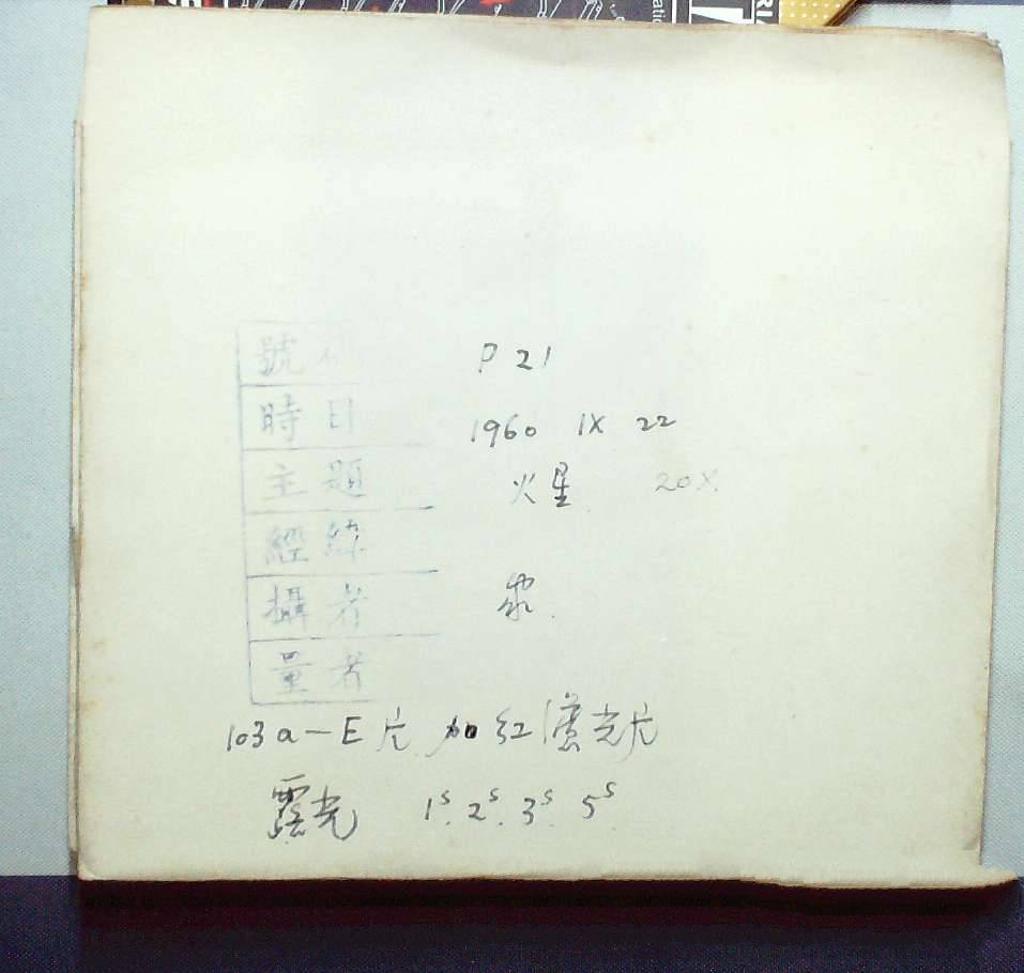 號 P 21
時日 1960 IX 22
主題 火星 20X
經緯
攝者
量者
103a-E片 加红濾光片
露光 1ˢ. 2ˢ. 3ˢ. 5ˢ